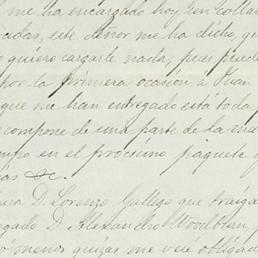 me ha encargado hoy un collar
este Señor me ha dicho, q
quiero cargarle nada, pues puede
por la primera ocasión á Juan
que me han entregado esta toda
compone de una parte de la
en el procsimo paquete y
&c.
para D. Lorenzo Gallego que traiga
D. Alexandro Woodbian,
menos quizas me veré obligado